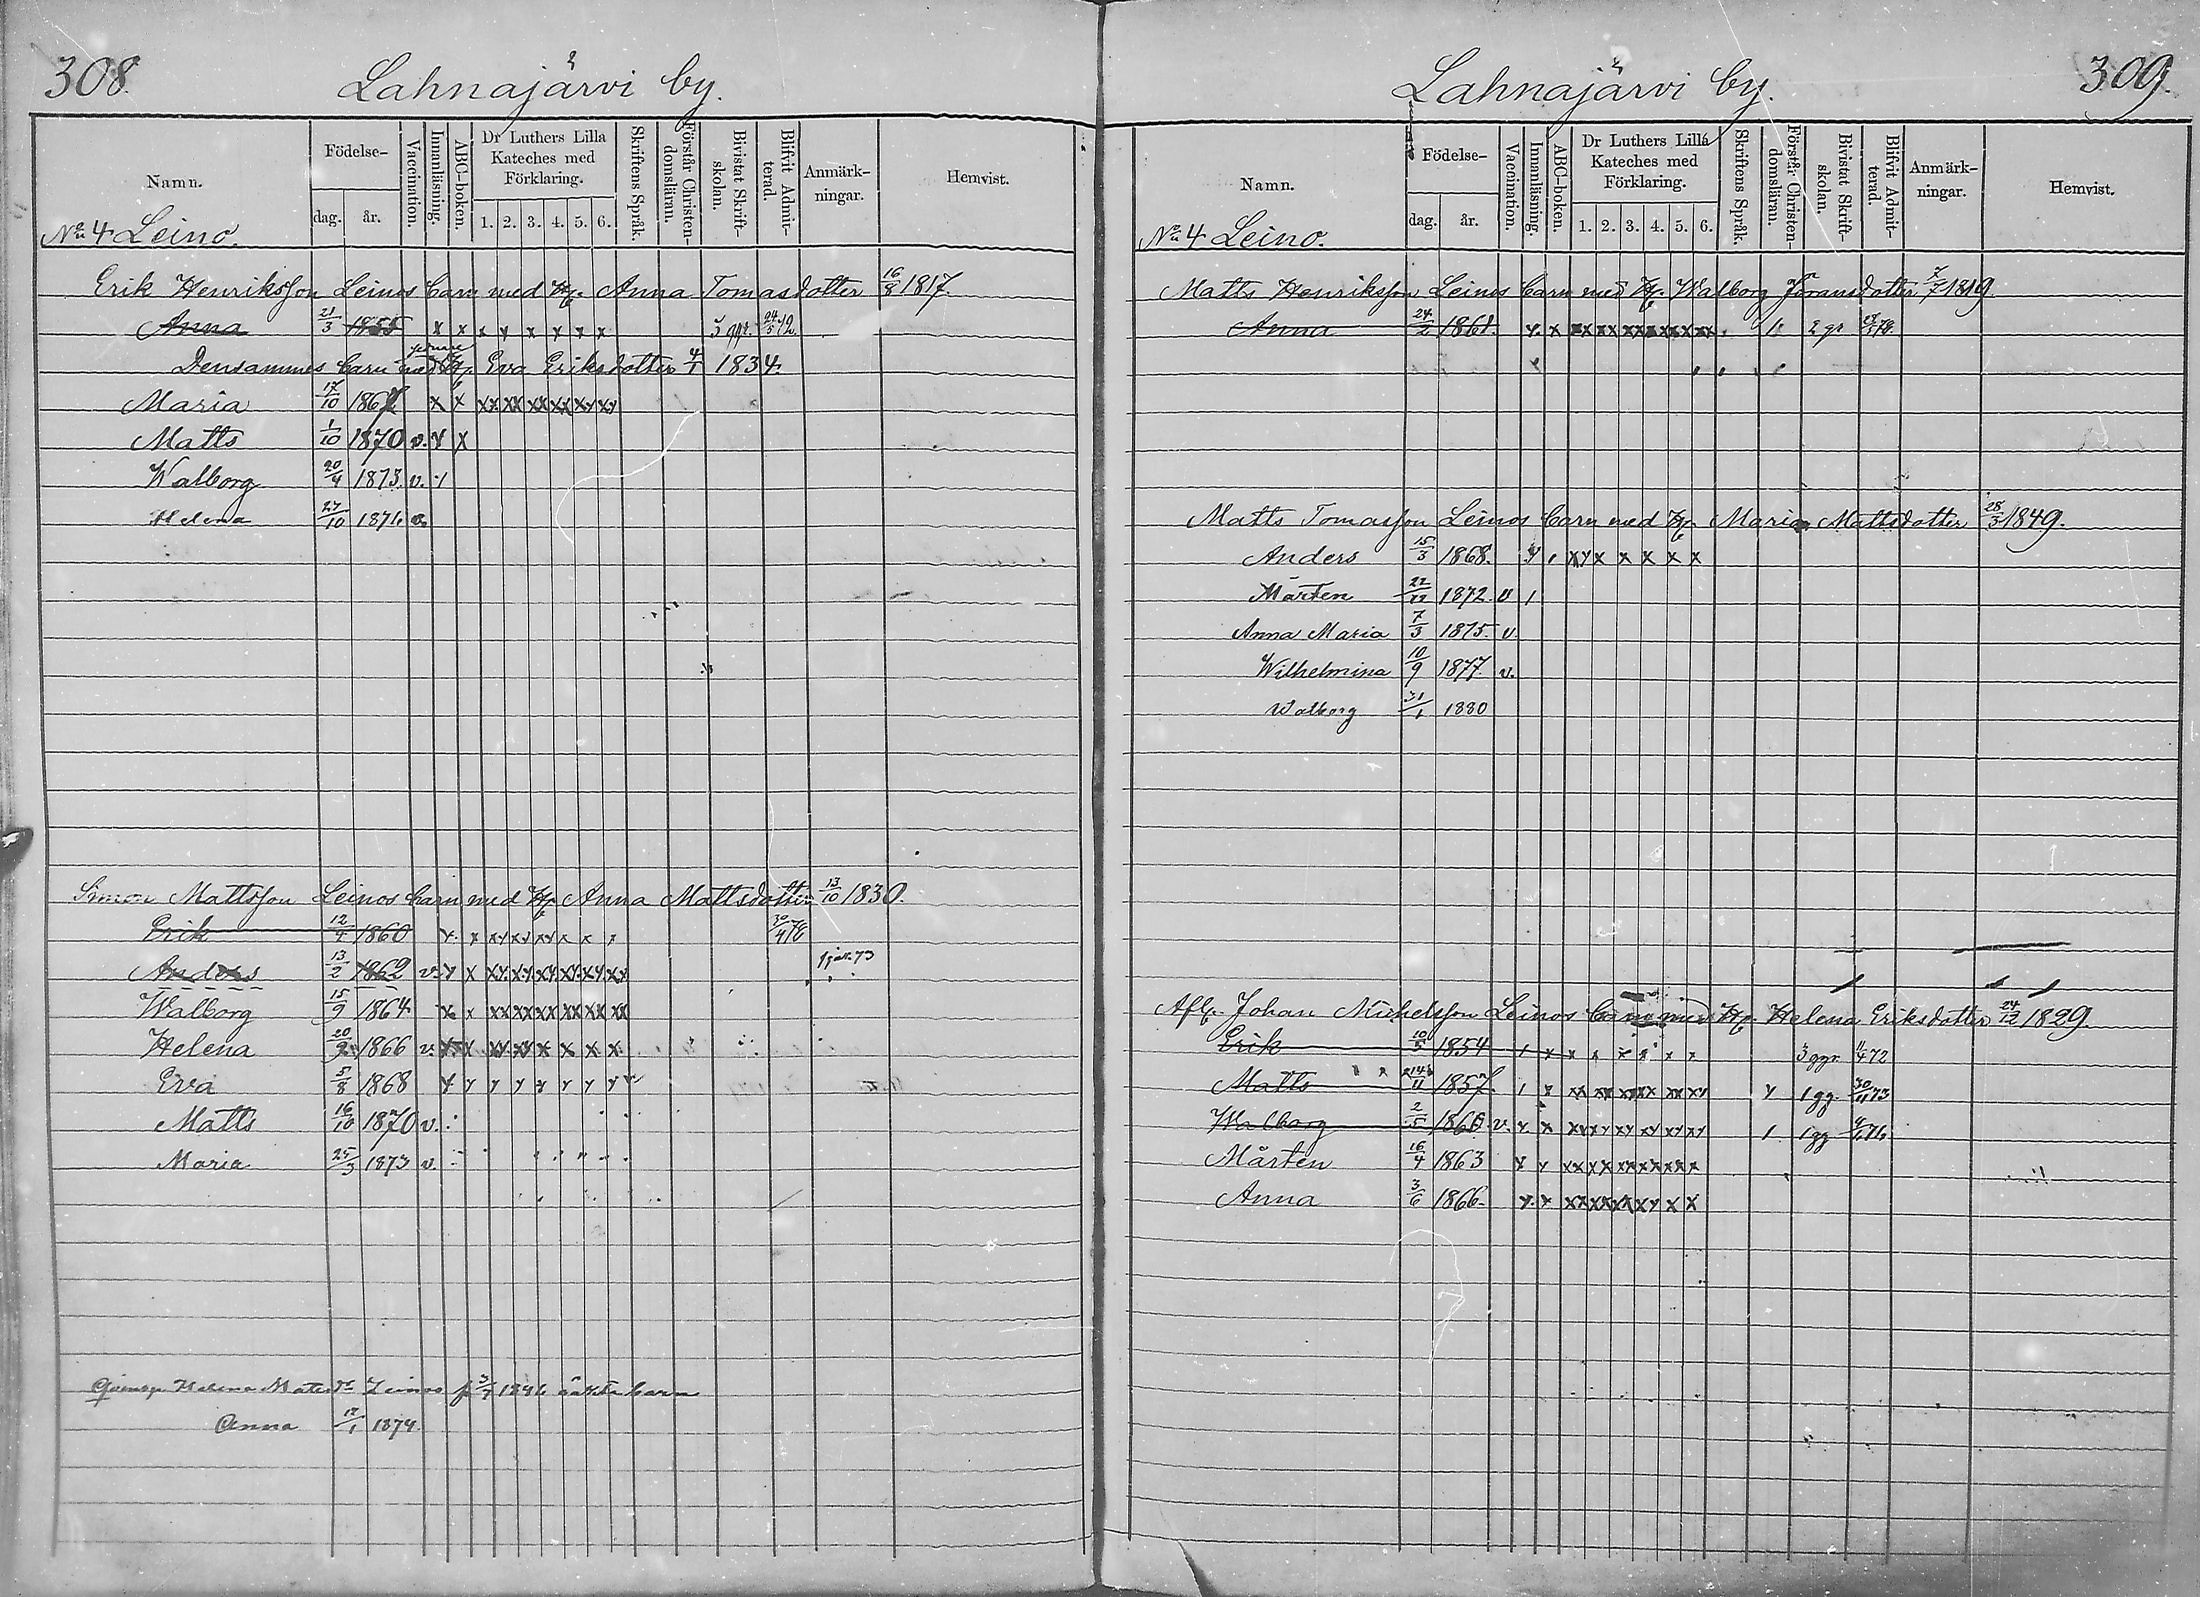 308.
Lahnajärvi by.
Namn.
Födelse-
dag. år.
Vaccination.
Innanläsning.
ABC-boken.
Dr Luthers Lilla
Kateches med
Förklaring.
1. 2. 3. 4. 5. 6.
Skriftens Språk.
Förstår Christen-
domsläran.
Bivistat Skrift-
skolan.
Blifvit Admit-
terad.
Anmärk-
ningar.
Hemvist.
No 4 Leino.
Erik Henriksson Leinos barn med Hu. Anna Tomasdotter 16/8 1817.
Anna 21/3 1855 x x x y x y x x 3 ggr. 24/5 72.
Densammes barn med Hu. Eva Eriksdotter 4/1 1834.
Maria 17/10 x x xx xx xx xx xy xy
Matts 1/10 1870 v. y x
Walborg 20/4 1873. v.
Helena 27/10 1876 v.
Simon Mattsson Leinos barn med Hu Anna Mattsdotter 13/10 1830.
Erik 12/4 1860 y. x xy xy xy x x x 30/4 78
Anders 13/2 1862 v. y x xy xy xy xy xy xy
Walborg 15/9 1864 x x xx xx xx xx xx xx
Helena 20/9 1866 v.
Eva 5/8 1868 y y y y y y y y
Matts 16/10 1870 v.
Maria 25/3 1873 v.
Helena Leinos barn
Anna 17/1 1874.
Lahnajärvi by.
309.
Namn.
Födelse-
dag. år.
Vaccination.
Innanläsning.
ABC-boken.
Dr Luthers Lilla
Kateches med
Förklaring.
1. 2. 3. 4. 5. 6.
Skriftens Språk.
Förstår Christen-
domsläran.
Bivistat Skrift-
skolan.
Blifvit Admit-
terad.
Anmärk-
ningar.
Hemvist.
No 4 Leino.
Matts Henriksson Leinos barn med Hu. Walborg Göransdotter 7/7 1819.
Anna 24/2 1861. y. x 2 gr
Matts Tomasson Leinos barn med Hu. Maria Mattsdotter 28/3 1849.
Anders 15/3 1868. xy x x x x x
Mårten 22/12 1872. v
Anna Maria 7/3 1875. v.
Wilhelmina 10/9 1877. v.
Walborg 31/1 1880
Afl. Johan Michelsson Leinos barn med Hu. Helena Eriksdotter 24/12 1829.
Erik 10/5 1854 3 ggr. 11/4 72
Matts 1857. 1 gg. 30/11 73
Walborg 2/5 v. 1 gg
Mårten 16/4 1863
Anna 3/6 1866.